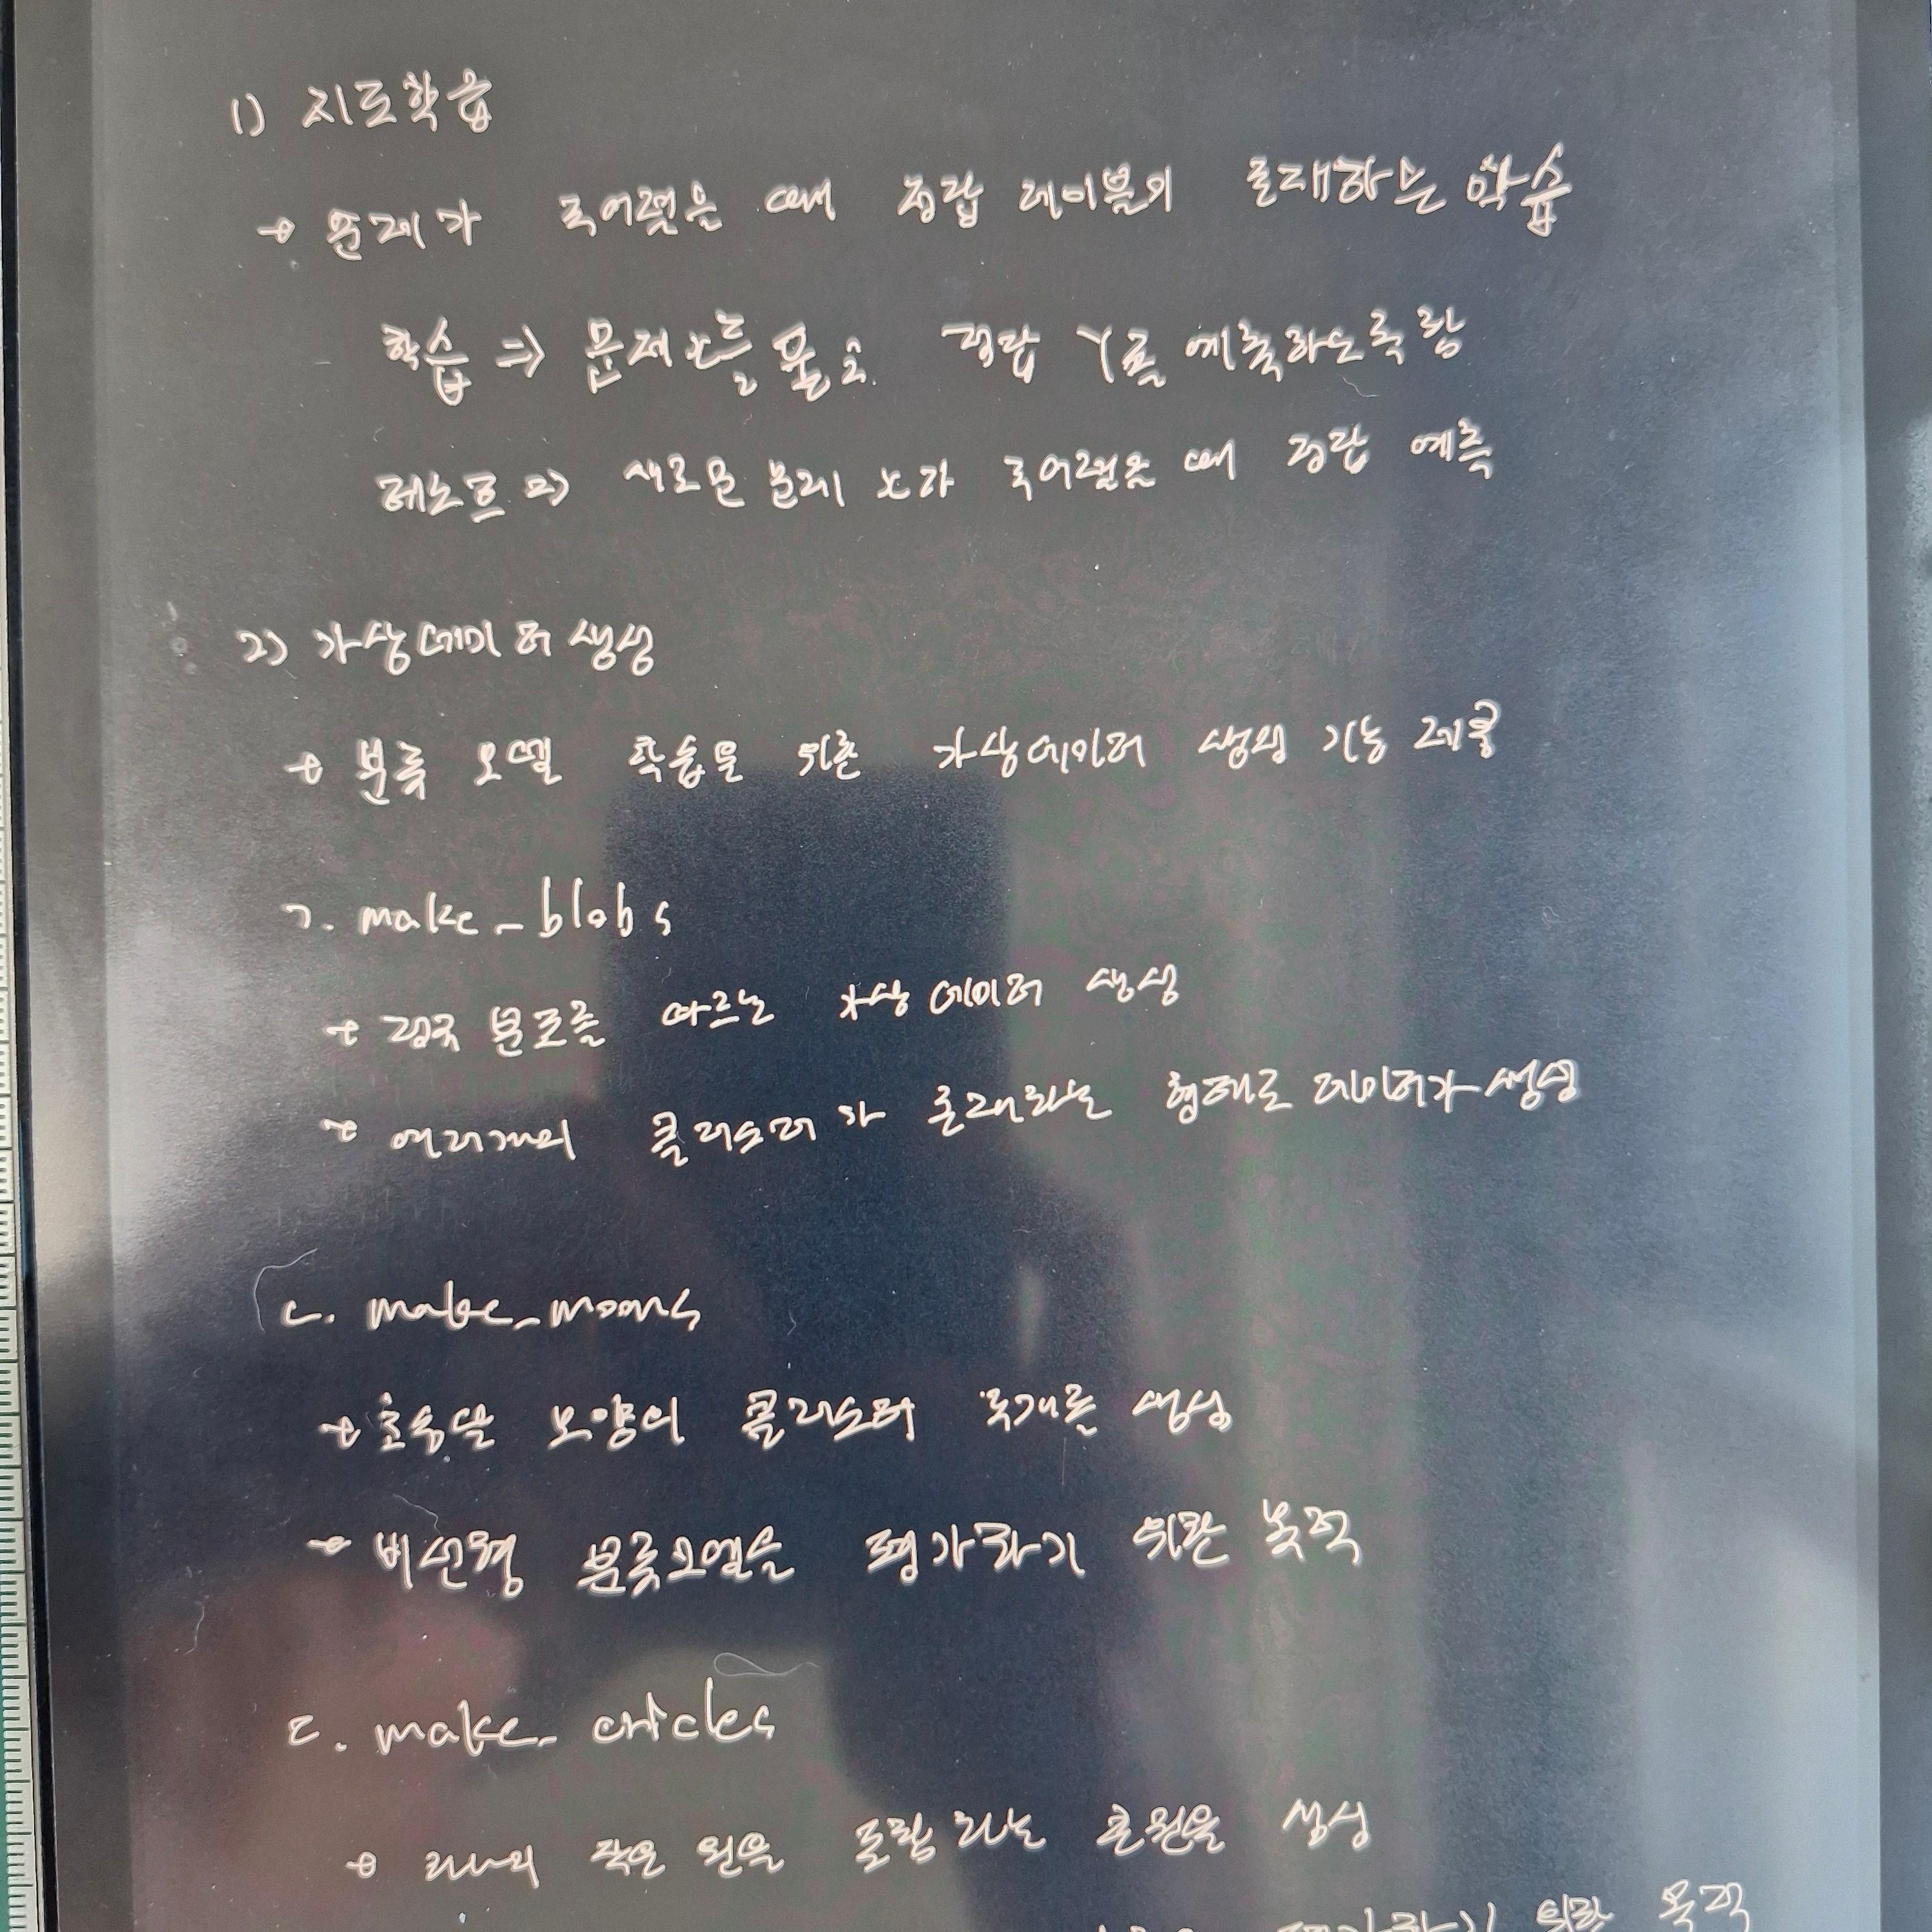 1) 지도학습
→ 문제가 주어졌을 때 정답 레이블이 존재하는 학습
학습 ⇒ 문제 x를 풀고 정답 Y를 예측하도록 함
테스트 ⇒ 새로운 문제 x가 주어졌을 때 정답 예측
2) 가상데이터 생성
→ 분류 모델 학습을 위한 가상데이터 생성 기능 제공
ㄱ. make_blobs
→ 정규 분포를 따르는 가상 데이터 생성
→ 여러개의 클러스터가 존재하는 형태로 데이터가 생성
ㄴ. make_moons
→ 초승달 모양의 클러스터 두개를 생성
→ 비선형 분류모델을 평가하기 위한 목적
ㄷ. make_circles
→ 하나의 작은 원을 포함하는 큰원을 생성
평가하기 위한 목적